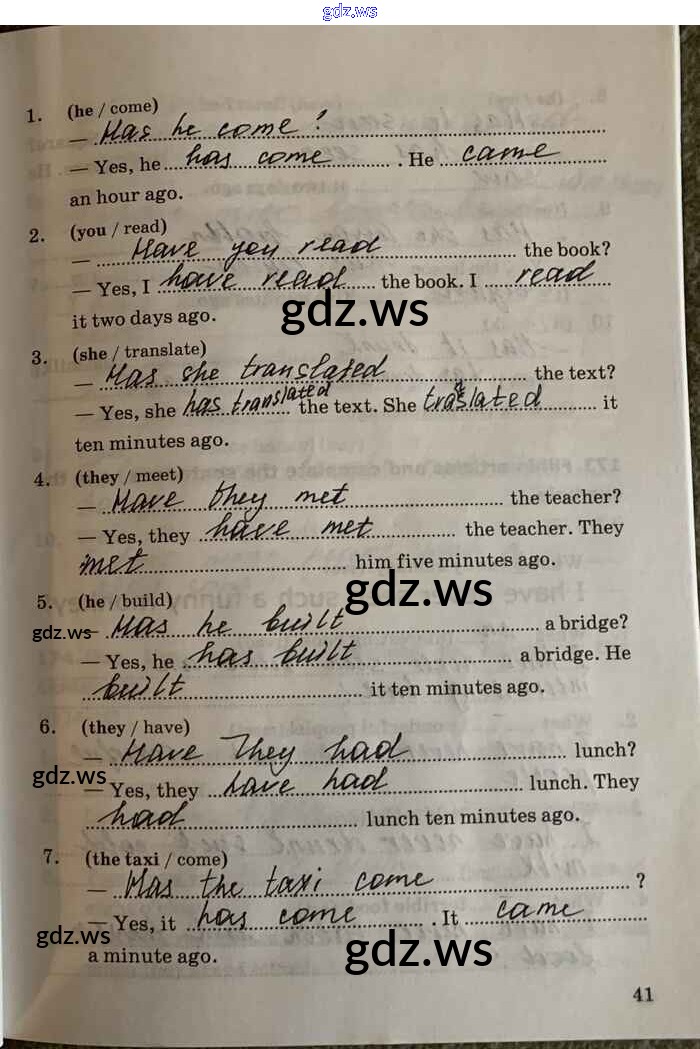 gdz.ws
1. (he / come)
— Has he come?
— Yes, he has come. He came
an hour ago.
2. (you / read)
— Have you read the book?
— Yes, I have read the book. I read
it two days ago.
gdz.ws
3. (she / translate)
— Has she translated the text?
— Yes, she has translated the text. She translated it
ten minutes ago.
4. (they / meet)
— Have they met the teacher?
— Yes, they have met the teacher. They
met him five minutes ago.
gdz.ws
5. (he / build)
gdz.ws
— Has he built a bridge?
— Yes, he has built a bridge. He
built it ten minutes ago.
6. (they / have)
— Have They had lunch?
gdz.ws
— Yes, they have had lunch. They
had lunch ten minutes ago.
7. (the taxi / come)
— Has the taxi come ?
— Yes, it has come. It came
gdz.ws
gdz.ws
a minute ago.
41